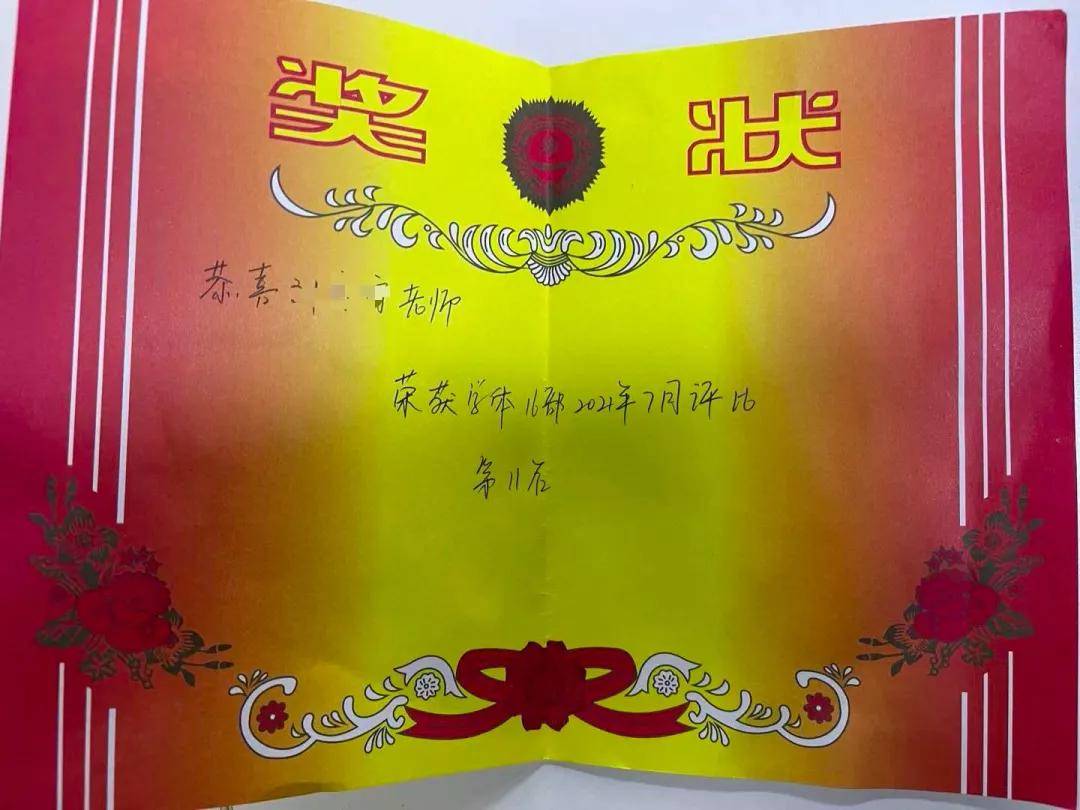 奖状
恭喜刘 老师
荣获字体16部2021年7月评比
第11名